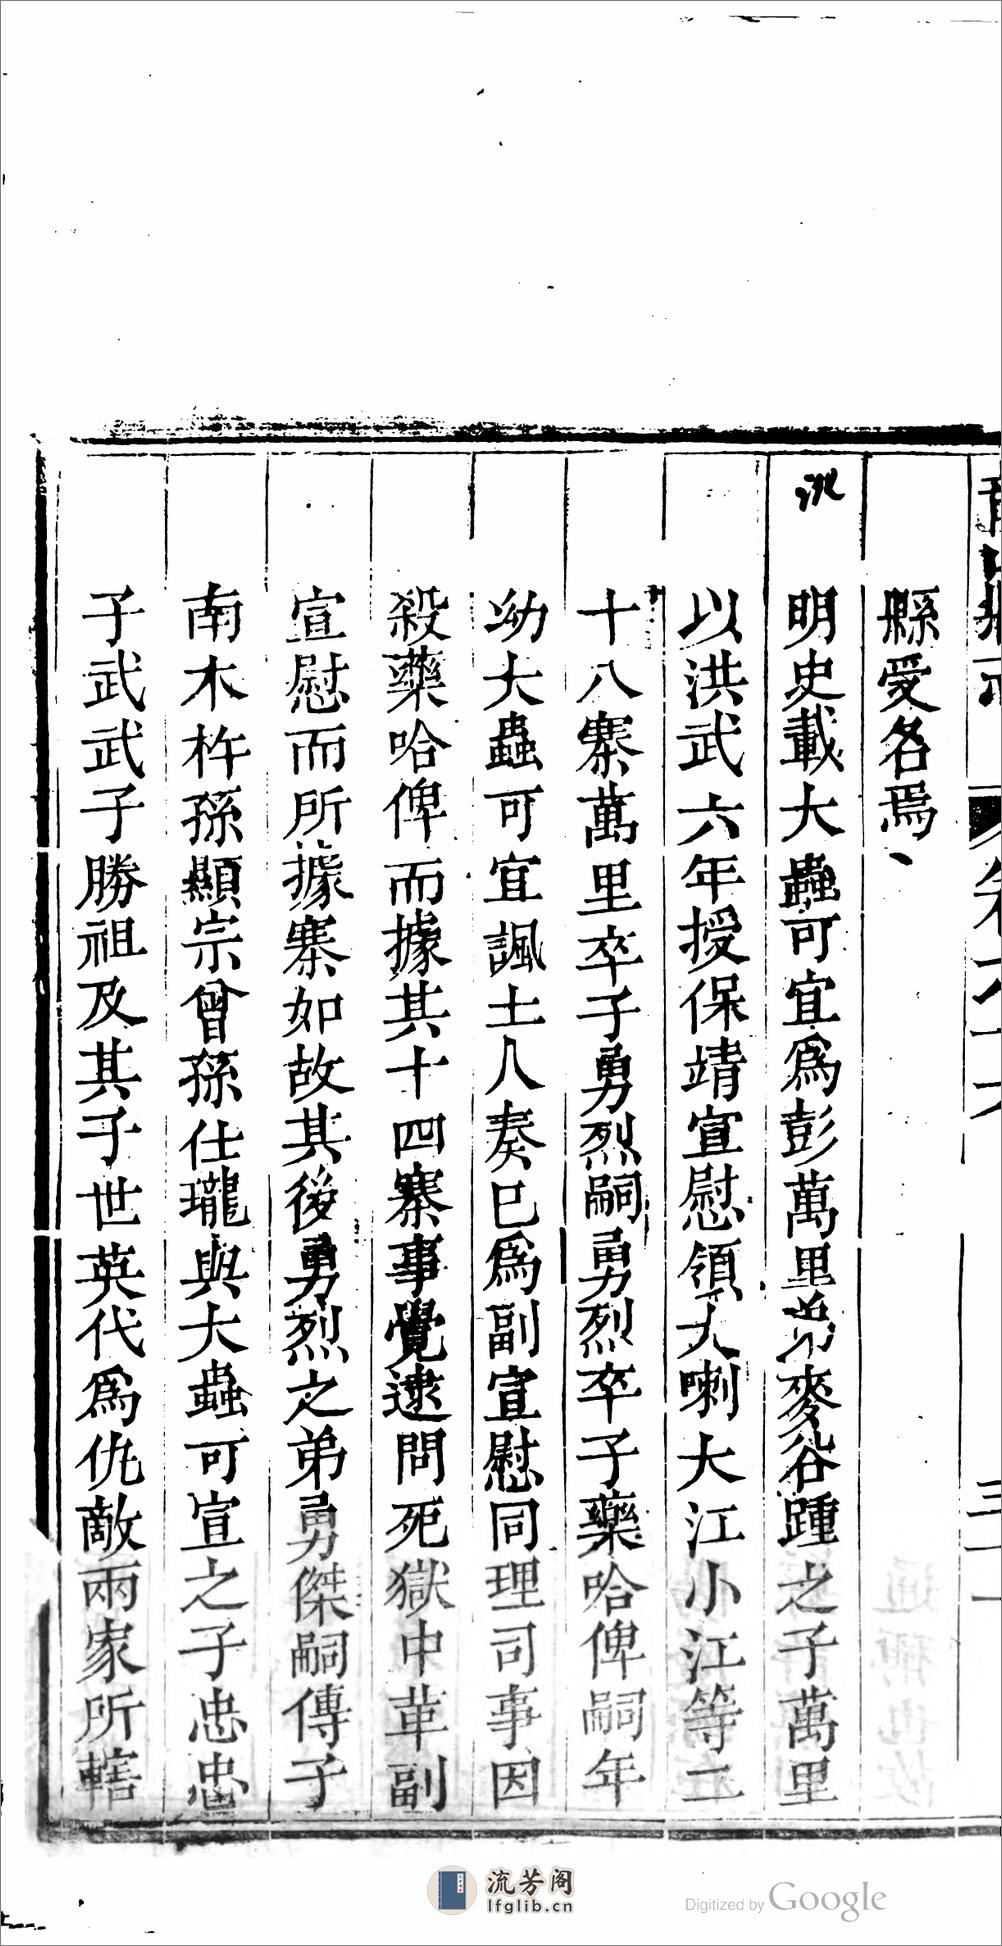 縣受名焉、
明史載大蟲可宜爲彭萬里弟麥谷踵之子萬里
以洪武六年授保靖宣慰領大喇大江小江等二
十八寨萬里卒子勇烈嗣勇烈卒子藥哈俾嗣年
幼大蟲可宜諷土人奏已爲副宣慰同理司事因
殺藥哈俾而據其十四寨事覺逮問死獄中革副
宣慰而所據寨如故其後勇烈之弟勇傑嗣傳子
南木杵孫顯宗曾孫仕瓏與大蟲可宜之子忠忠
子武武子勝祖及其子世英代爲仇敵兩家所轄
流芳阁
lfglib.cn
Digitized by Google